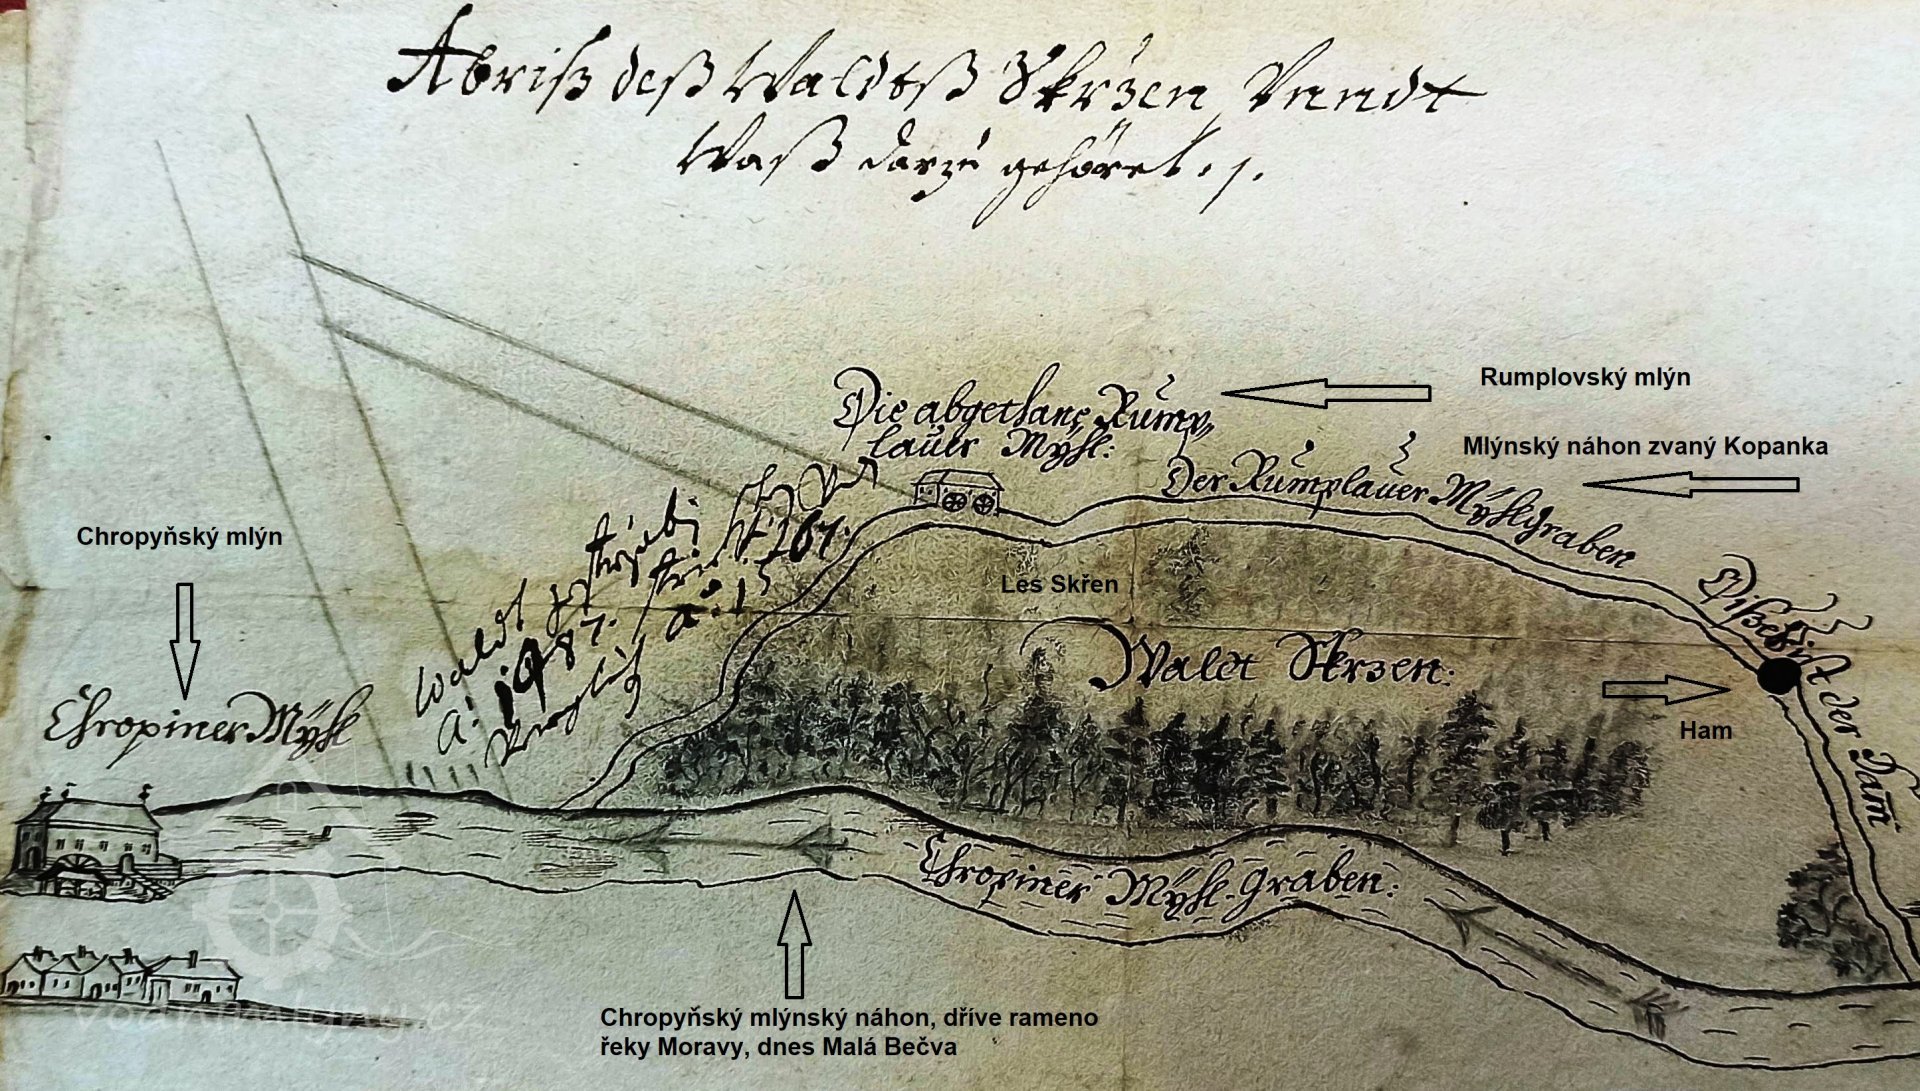 Abriß deß Waldtß Skrzen Vnndt
Waß darzu gehöret ./.
Die abgethane Rump,,
lauer Mÿhl:
Rumplovský mlýn
Mlýnský náhon zvaný Kopanka
Der Rumplauer Mÿhlgraben
Chropyňský mlýn
Chropiner Mÿhl
Waldt
Les Skřen
Waldt Skrzen:
Ham
der Dam
Chropiner Mÿhl Graben:
Chropyňský mlýnský náhon, dříve rameno
řeky Moravy, dnes Malá Bečva
vodnimlyny.cz